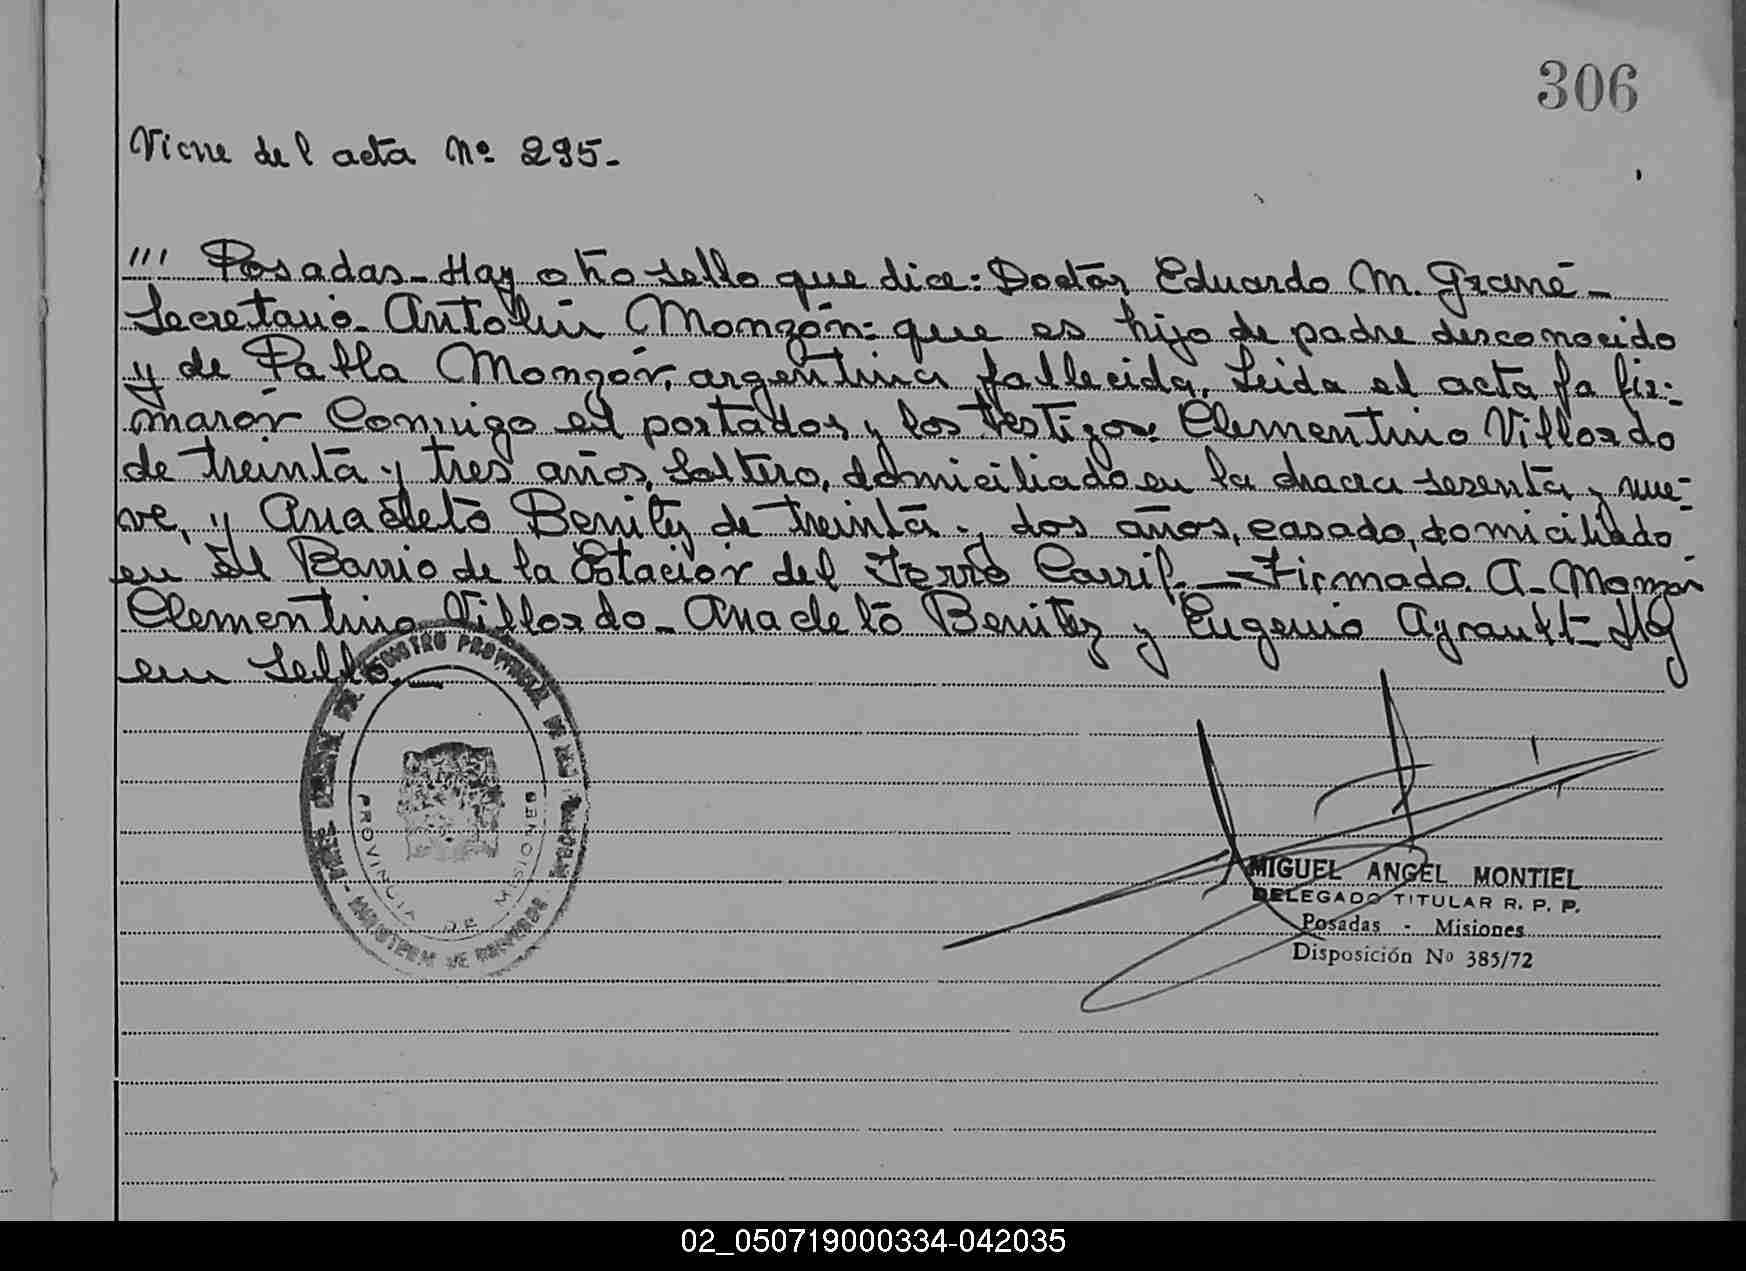 306
Viene del acta Nº 295.-
''' Posadas - Hay otro sello que dice: Doctor Eduardo M. Grané -
Secretario. Antolin Monzón: que es hijo de padre desconocido
y de Pabla Monzón, argentina, fallecida. Leida el acta la fir-
maron conmigo el portador y los testigos: Clementino Villordo
de treinta y tres años, soltero, domiciliado en la chacra sesenta y nue-
ve, y Anacleto Benitez de treinta y dos años, casado, domiciliado
en El Barrio de la Estación del Ferro Carril. - Firmado. A. Monzón
Clementino Villordo - Anacleto Benitez y Eugenio Ayrault - Hay
un sello. -
REGISTRO PROVINCIAL DE LAS
PROVINCIA DE MISIONES
MIGUEL ANGEL MONTIEL
DELEGADO TITULAR R. P. P.
Posadas - Misiones
Disposición Nº 385/72
02_050719000334-042035